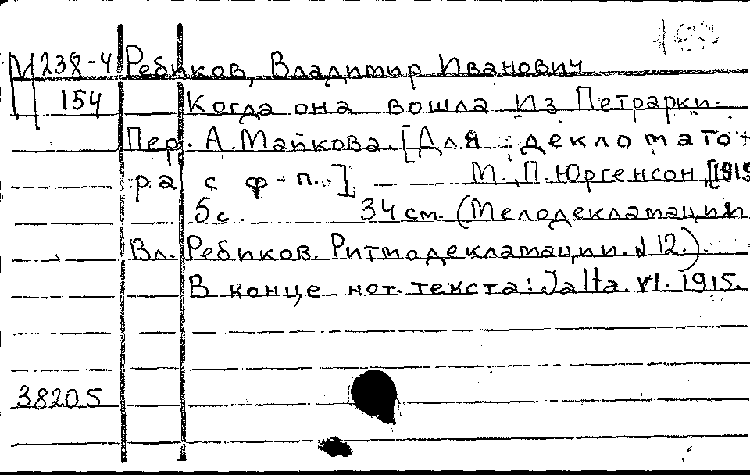 М238-4 Ребиков, Владимир Иванович
154 Когда она вошла Из Петрарки.
Пер. А. Майкова. [Для декломато-
ра с ф-п.] М. П. Юргенсон, [1915
5 с. 34 см. (Мелодекламации
Вл. Ребиков. Ритмодекламации. № 12.)
В конце нот. текста: Jalta. VI. 1915.
38205